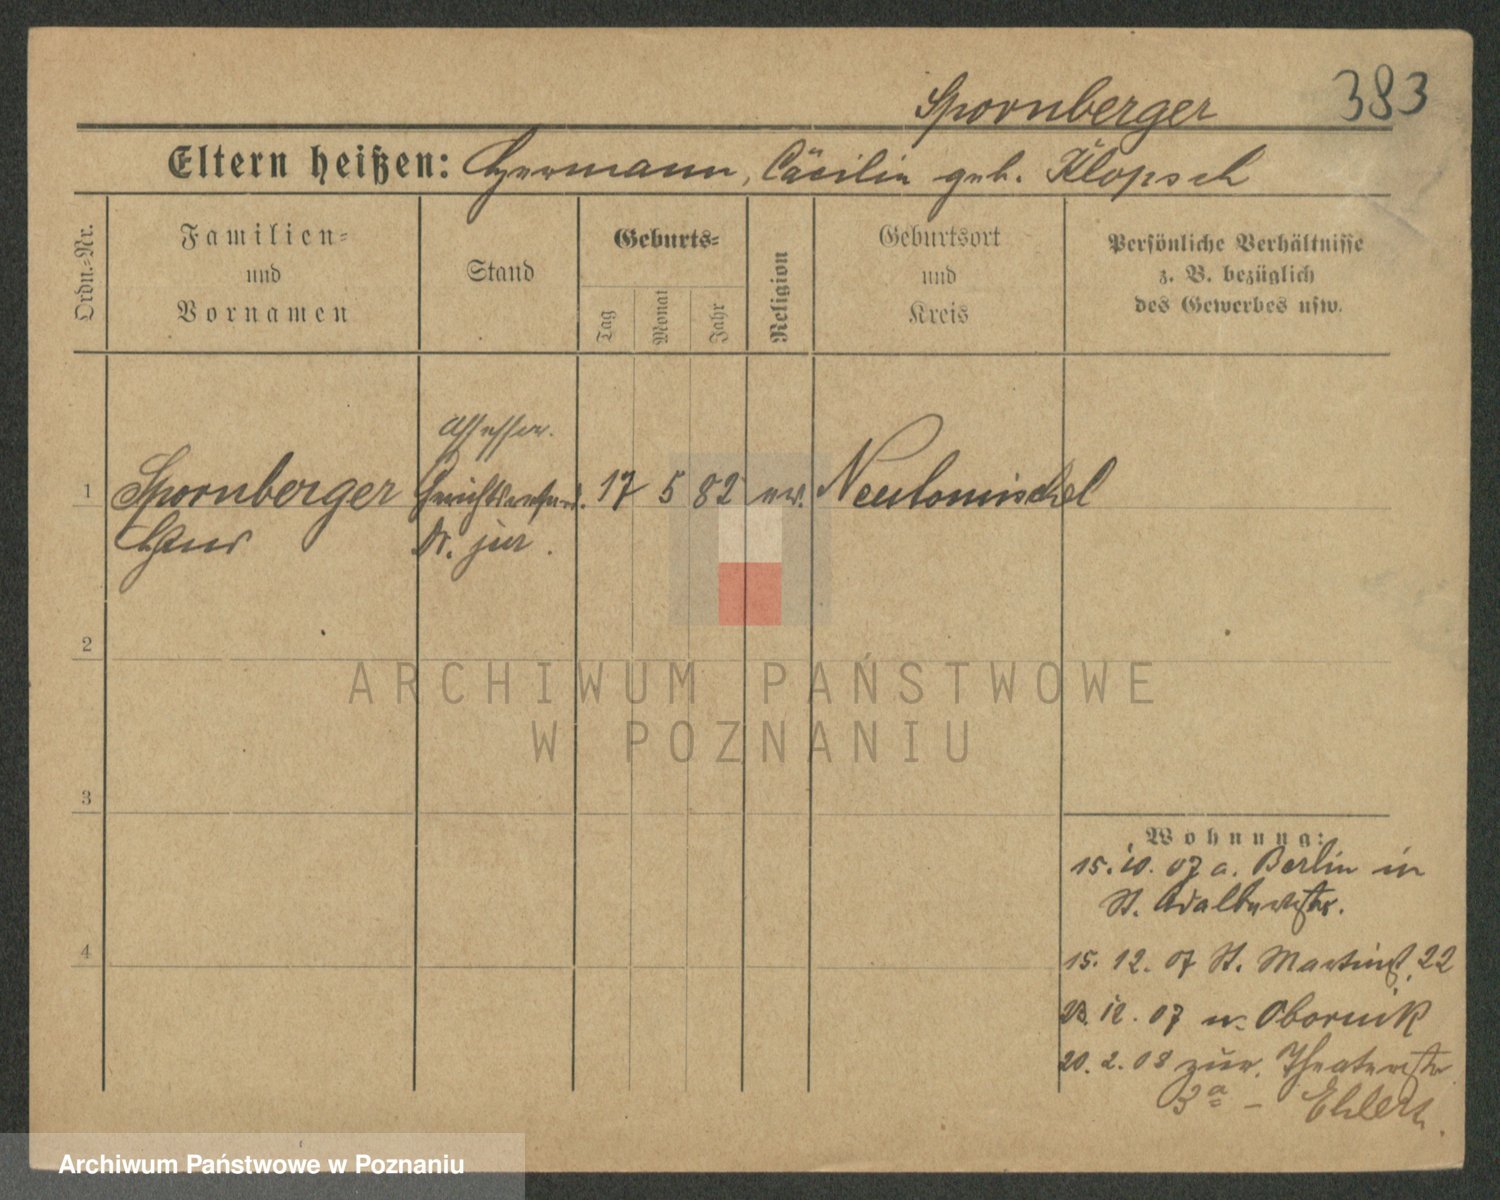 383
Spornberger
Eltern heißen: Hermann, Cäcilie geb. Klopsch
Ordn.-Nr.
Familien-
und
Vornamen
Stand
Geburts-
Tag
Monat
Jahr
Religion
Geburtsort
und
Kreis
Persönliche Verhältnisse
z. B. bezüglich
des Gewerbes usw.
Assessor.
1 Spornberger Gerichtsreferend. 17 5 82 ev. Neutomischel
Hans Dr. jur.
2
ARCHIWUM PAŃSTWOWE
W POZNANIU
3
Wohnung:
15. 10. 07 a. Berlin in
St. Adalbertstr.
4
15. 12. 07 St. Martinst. 22
23. 12. 07 n. Obornik
20. 2. 08 zur. Theaterstr
3a – Ehlert.
Archiwum Państwowe w Poznaniu